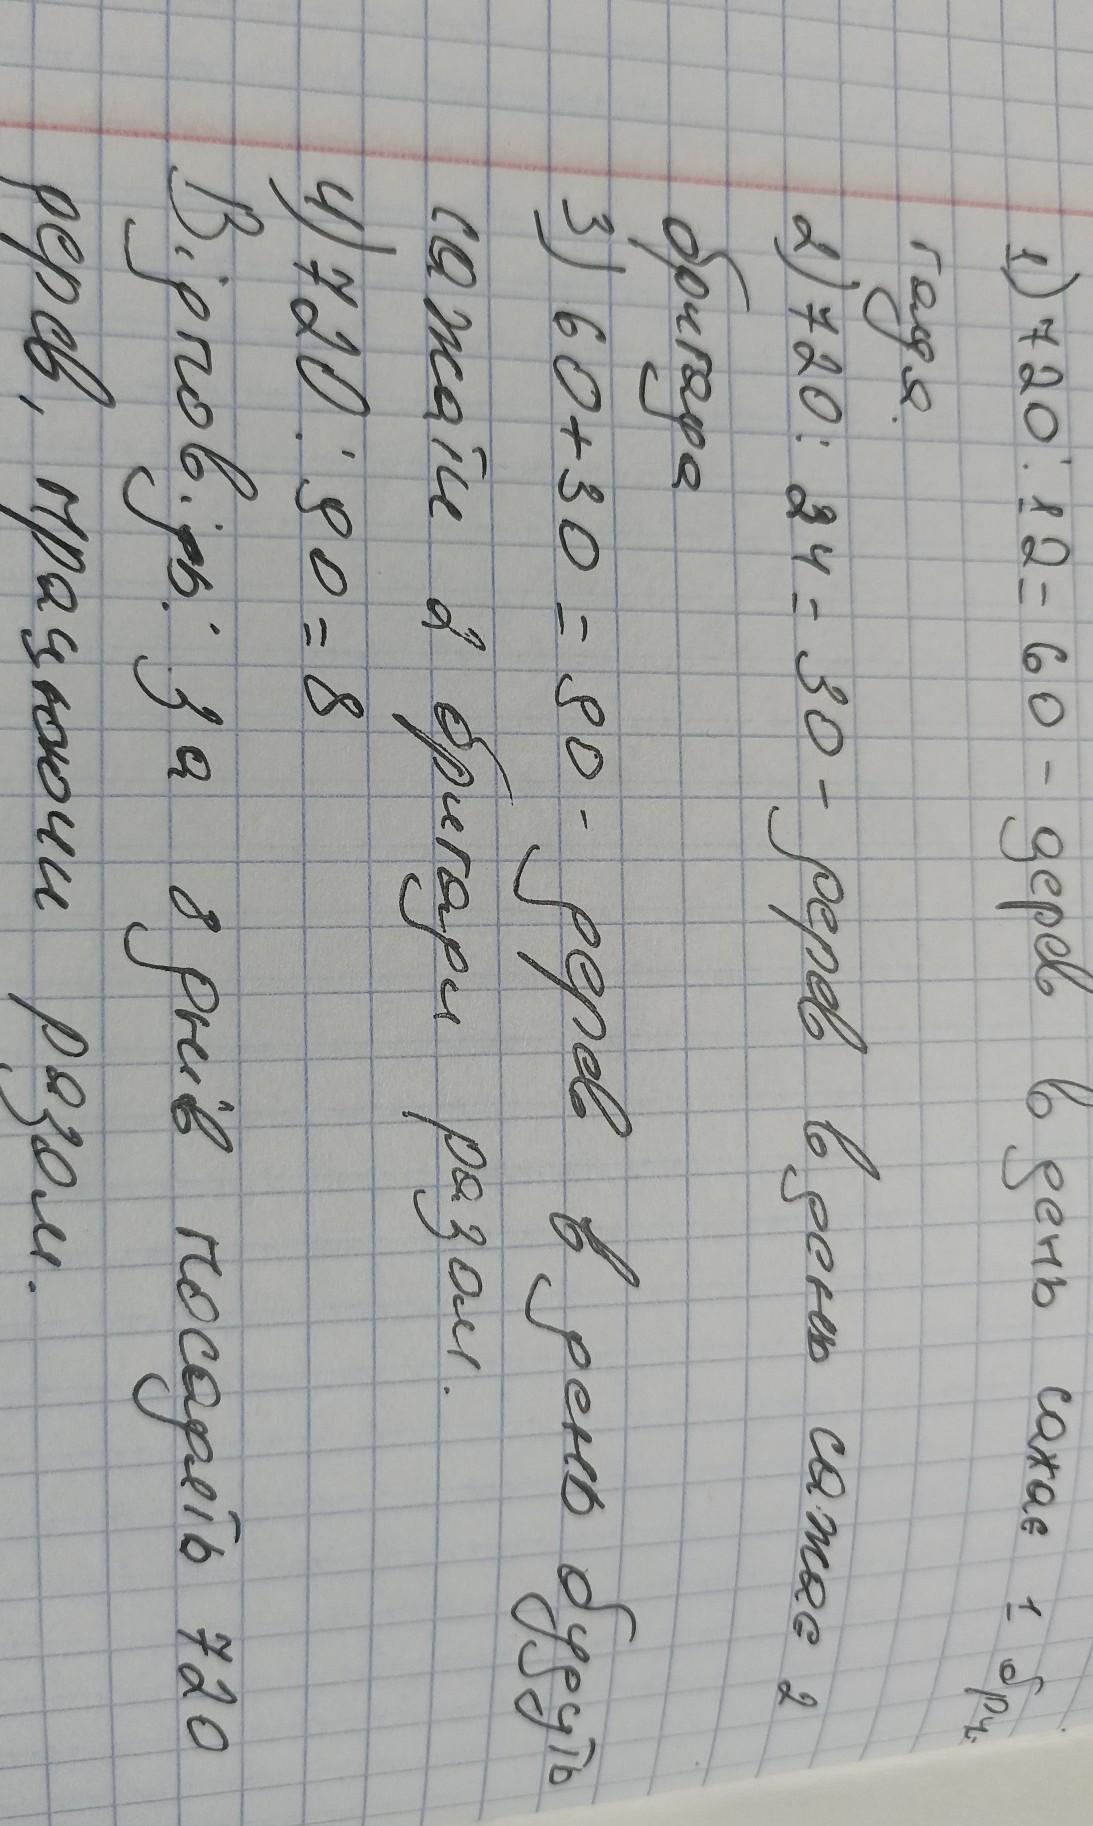 1) 720 : 12 = 60 - дерев в день сажає 1 бри-
гада.
2) 720 : 24 = 30 - дерев в день сажає 2
бригада
3) 60 + 30 = 90 - дерев в день будуть
сажати 2 бригади разом.
4) 720 : 90 = 8
Відповідь: За 8 днів посадять 720
дерев, працюючи разом.